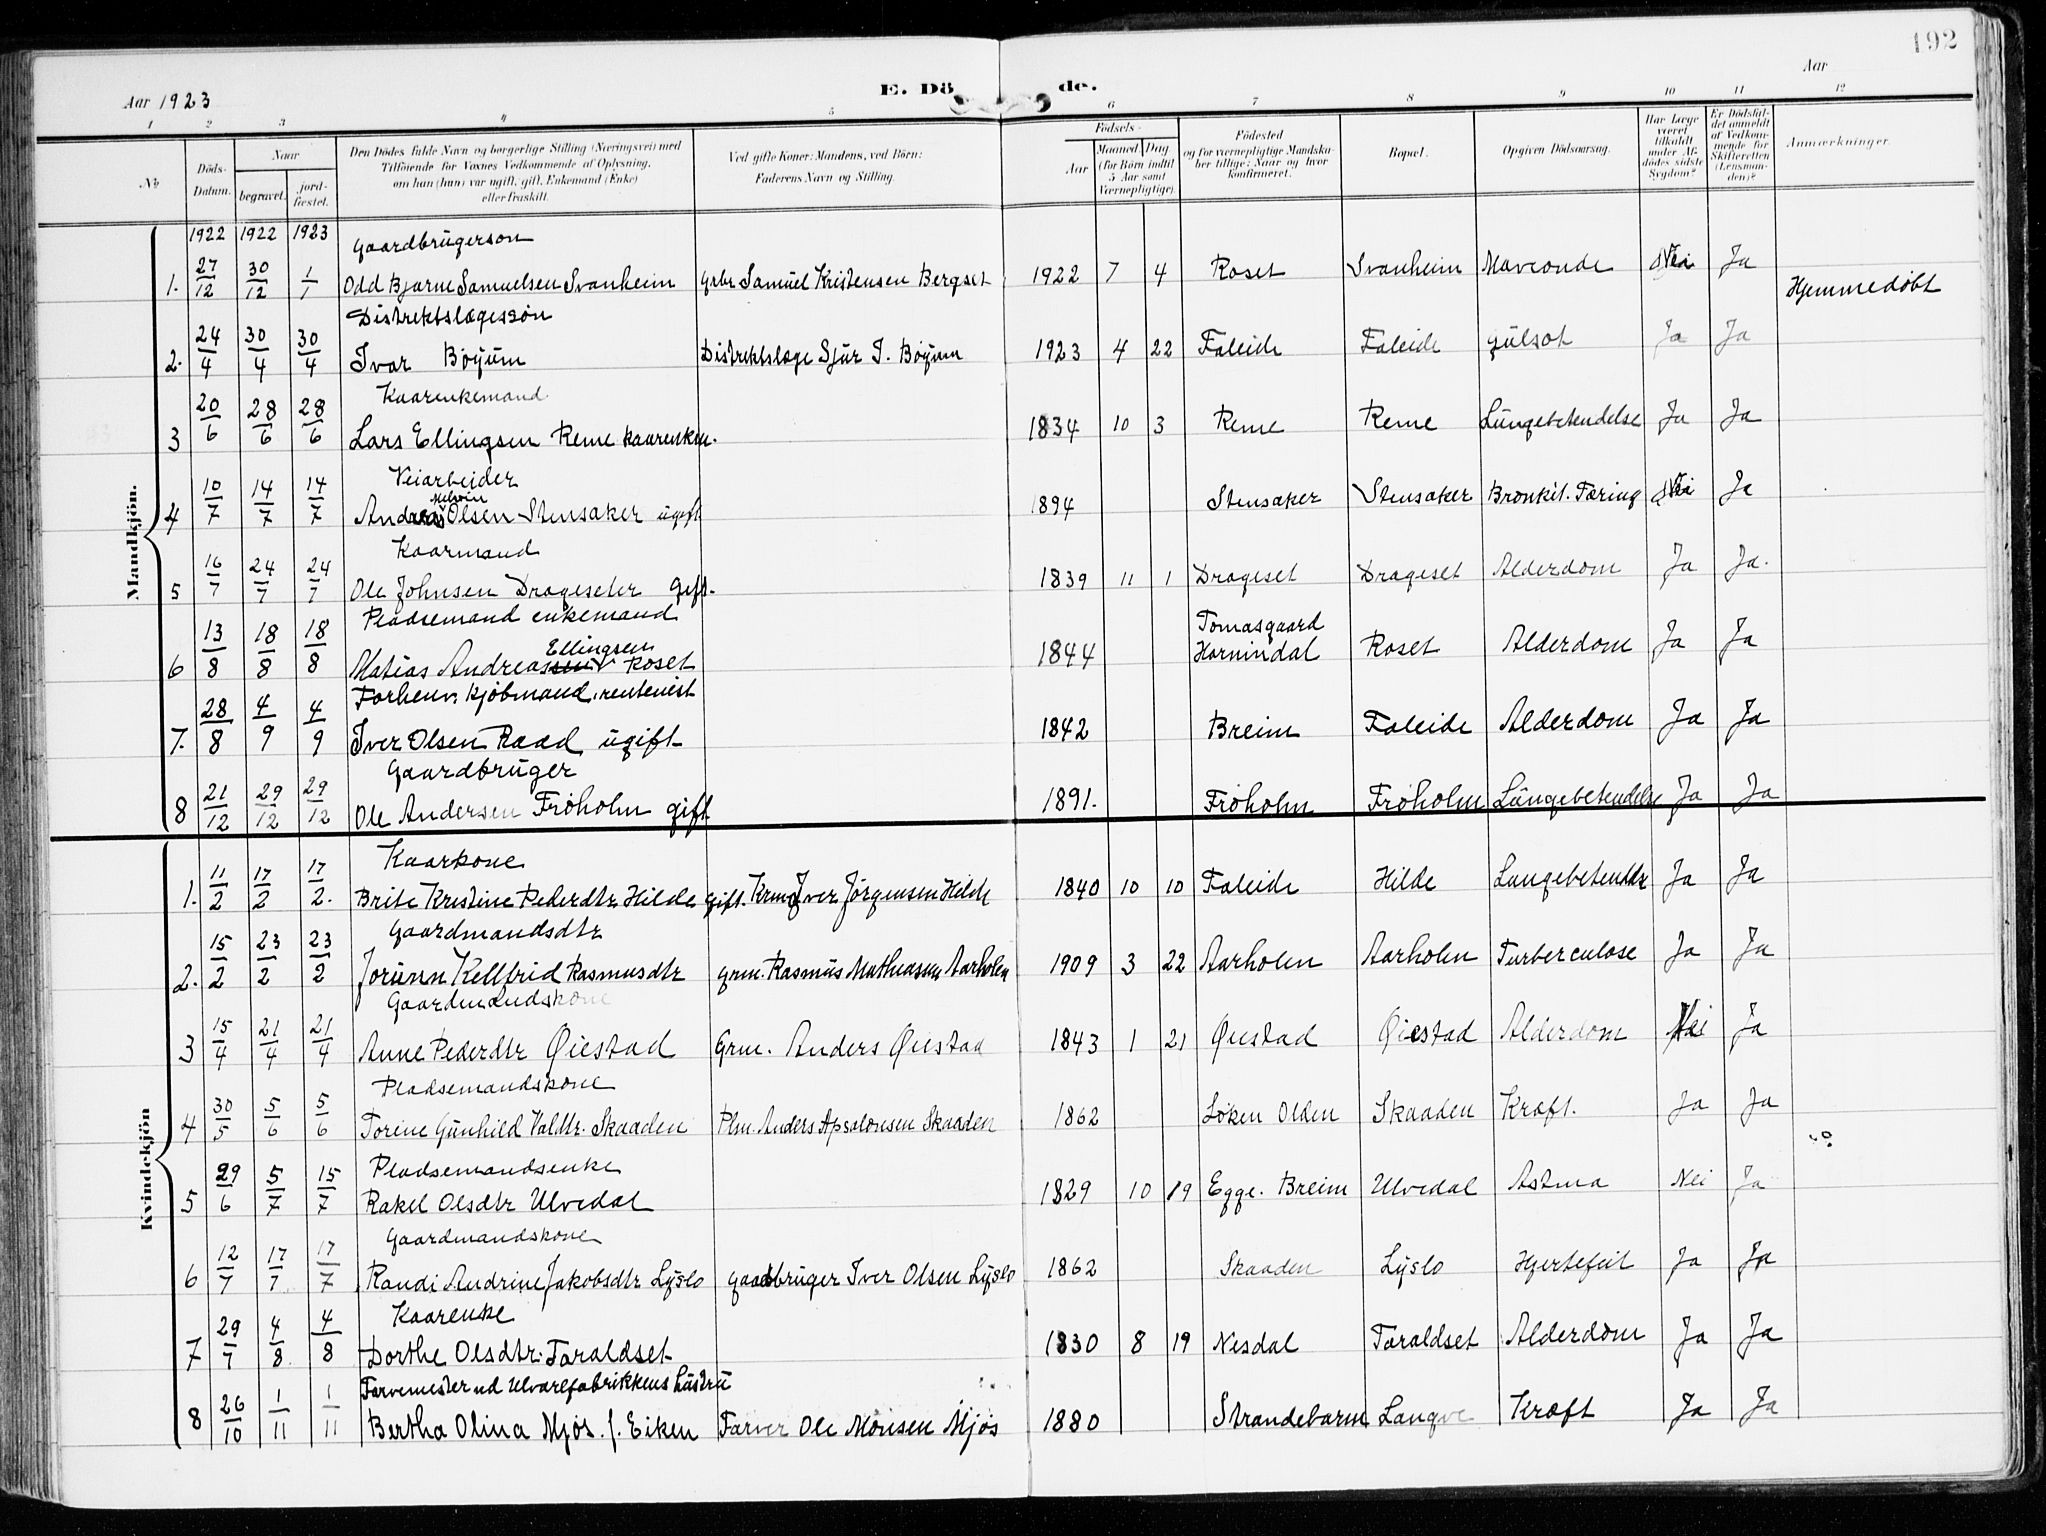 192
E. Döde.
Aar 1923
Aar
1 2 3 4 5 6 7 8 9 10 11 12
No
Döds-Datum.
Naar
begravet. jordfæstet.
Den Dödes fulde Navn og borgerlige Stilling (Næringsvei) med
Tilföiende for Voxnes Vedkommende af Oplysning,
om han (hun) var ugift, gift, Enkemand (Enke)
eller fraskilt.
Ved gifte Koner: Mandens, ved Börn:
Faderens Navn og Stilling.
Födsels-
Aar
Maaned Dag
(for Börn indtil
5 Aar samt
Værnepligtige).
Födested
og for værnepligtige Mandskaber tillige: Naar og hvor
konfirmeret.
Bopæl.
Opgiven Dödsaarsag.
Har Læge været tilkaldt under Afdödes sidste Sygdom?
Er Dödsfaldet anmeldt af Vedkommende for Skifteretten (Lensmanden)?
Anmærkninger.
Mandkjön.
1922 1922 1923 Gaardbrugerson
1. 27/12 30/12 1/1 Odd Bjarne Samuelsen Svanheim Gabr Samuel Kristensen Bergset 1922 7 4 Roset Svanheim Mavconde Nei Ja Hjemmedöbt
Distriktslægessøn
2. 24/4 30/4 30/4 Ivar Bøyum Distriktslæge Sjur I. Bøyum 1923 4 22 Faleide Faleide gulsot Ja Ja
Kaarenkemand
3 20/6 28/6 28/6 Lars Ellingsen Reme kaarenkem. 1834 10 3 Reme Reme Lungebetendelse Ja Ja
Veiarbeider
4 10/7 14/7 14/7 Andreas Melvin Olsen Stensaker ugift 1894 Stensaker Stensaker Bronkit. Tæring Nei Ja
Kaarmand
5 16/7 24/7 24/7 Ole Johnsen Drageseter gift. 1839 11 1 Drageset Drageset Alderdom Ja Ja.
Pladsemand enkemand
6 13/8 18/8 18/8 Matias Andreassen Ellingsen Roset 1844 Tomasgaard Hornindal Roset Alderdom Ja Ja
Forhenv. kjøbmand, rentenist
7. 28/8 4/9 4/9 Iver Olsen Raad ugift 1842 Breim Faleide Alderdom Ja Ja
Gaardbruger
8 21/12 29/12 29/12 Ole Andersen Frøholm gift 1891. Frøholm Frøholm Lungebetendelse Ja Ja
Kvindekjön
Kaarkone
1. 11/2 17/2 17/2. Brite Kristine Pederdtr Hilde gift. Krmd Iver Jørgensen Hilde 1840 10 10 Faleide Hilde Lungebetendlse Ja Ja
Gaardmandsdtr
2. 15/2 23/2 23/2 Jorunn Kellfrid Rasmusdtr Grm. Rasmus Mathiassen Aarholen 1909 3 22 Aarholen Aarholen Turberculose Ja Ja
Gaardmandskone
3 15/4 21/4 21/4 Anne Pederdtr Øiestad Grm. Anders Øiestad 1843 1 21 Øiestad Øiestad Alderdom Nei Ja
Pladsemandskone
4 30/5 5/6 5/6 Torine Gunhild Haldtr. Skaaden Plm. Anders Apsalonsen Skaaden 1862 Løken Olden Skaaden Kræft. Ja Ja
Pladsemandsenke
5 29/6 5/7 15/7 Rakel Olsdtr Ulvedal 1829 10 19 Egge. Breim Ulvedal Astma Nei Ja
Gaardmandskone
6 12/7 17/7 17/7 Randi Andrine Jakobsdtr Lyslo gaardbruger Iver Olsen Lyslo 1862 Skaaden Lyslo Hjertefeil Ja Ja
Kaarenke
7 29/7 4/8 4/8 Dorthe Olsdtr. Taraldset 1830 8 19 Nesdal Taraldset Alderdom Ja Ja
Farvemester ved Ulvarefabrikkens hustru
8 26/10 1/11 1/11 Bertha Olina Mjøs. f. Eiken Farver Ole Monsen Mjøs 1880 Strandebarm Langve Kræft Ja Ja